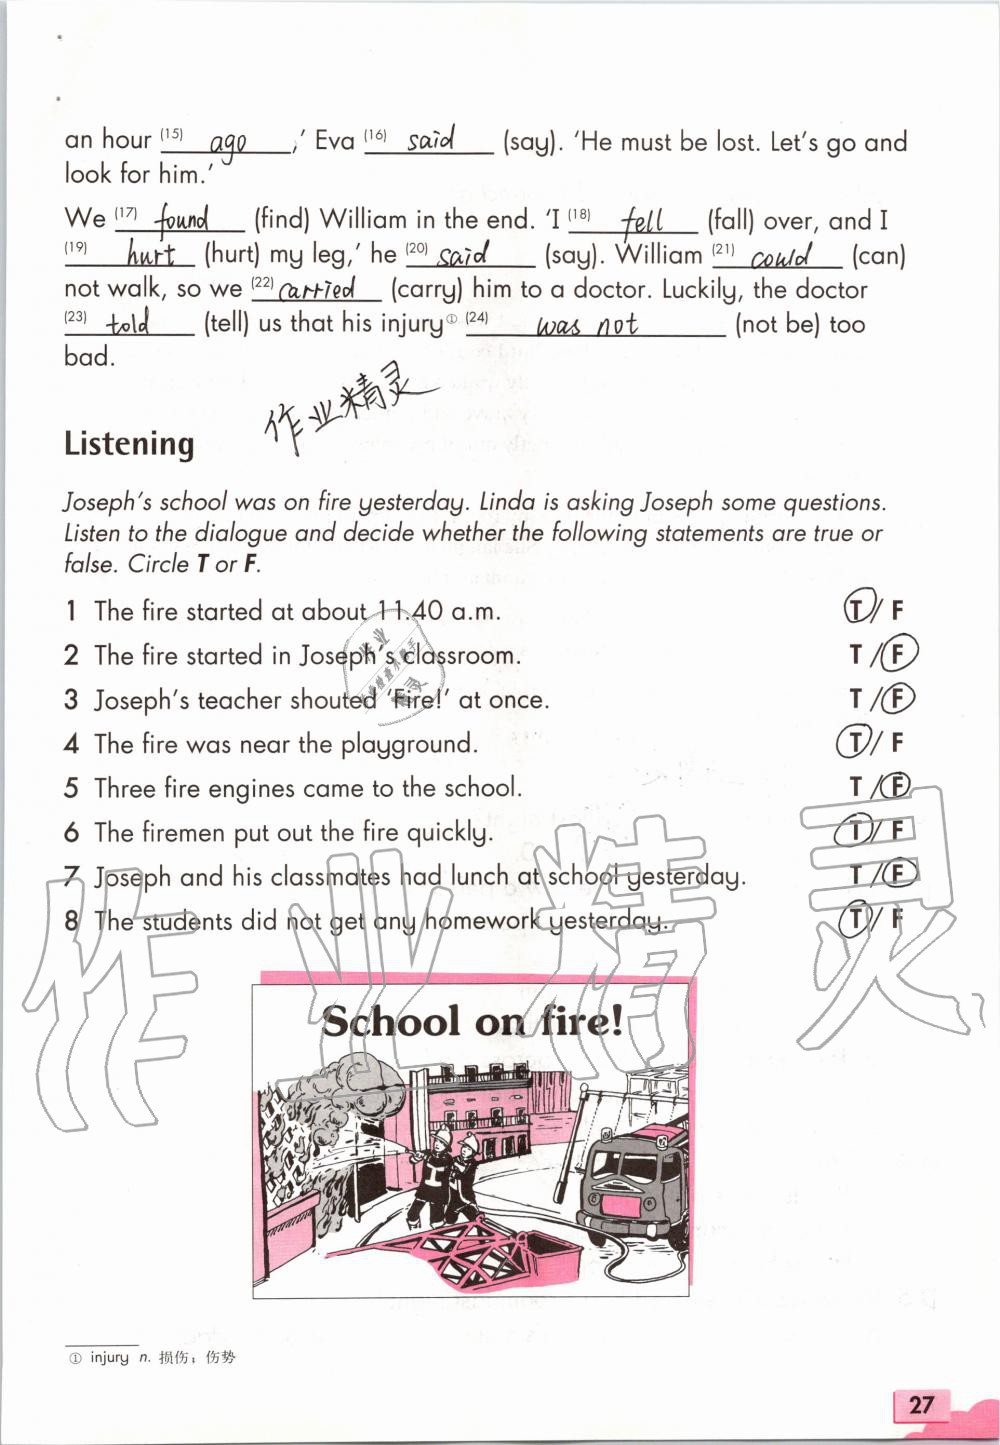 an hour (15) ago ,' Eva (16) said (say). 'He must be lost. Let's go and
look for him.'
We (17) found (find) William in the end. 'I (18) fell (fall) over, and I
(19) hurt (hurt) my leg,' he (20) said (say). William (21) could (can)
not walk, so we (22) carried (carry) him to a doctor. Luckily, the doctor
(23) told (tell) us that his injury① (24) was not (not be) too
bad.
作业精灵
Listening
Joseph's school was on fire yesterday. Linda is asking Joseph some questions.
Listen to the dialogue and decide whether the following statements are true or
false. Circle T or F.
1 The fire started at about 11.40 a.m. T / F
2 The fire started in Joseph's classroom. T / F
3 Joseph's teacher shouted 'Fire!' at once. T / F
4 The fire was near the playground. T / F
5 Three fire engines came to the school. T / F
6 The firemen put out the fire quickly. T / F
7 Joseph and his classmates had lunch at school yesterday. T / F
8 The students did not get any homework yesterday. T / F
作业精灵
School on fire!
① injury n. 损伤；伤势
27